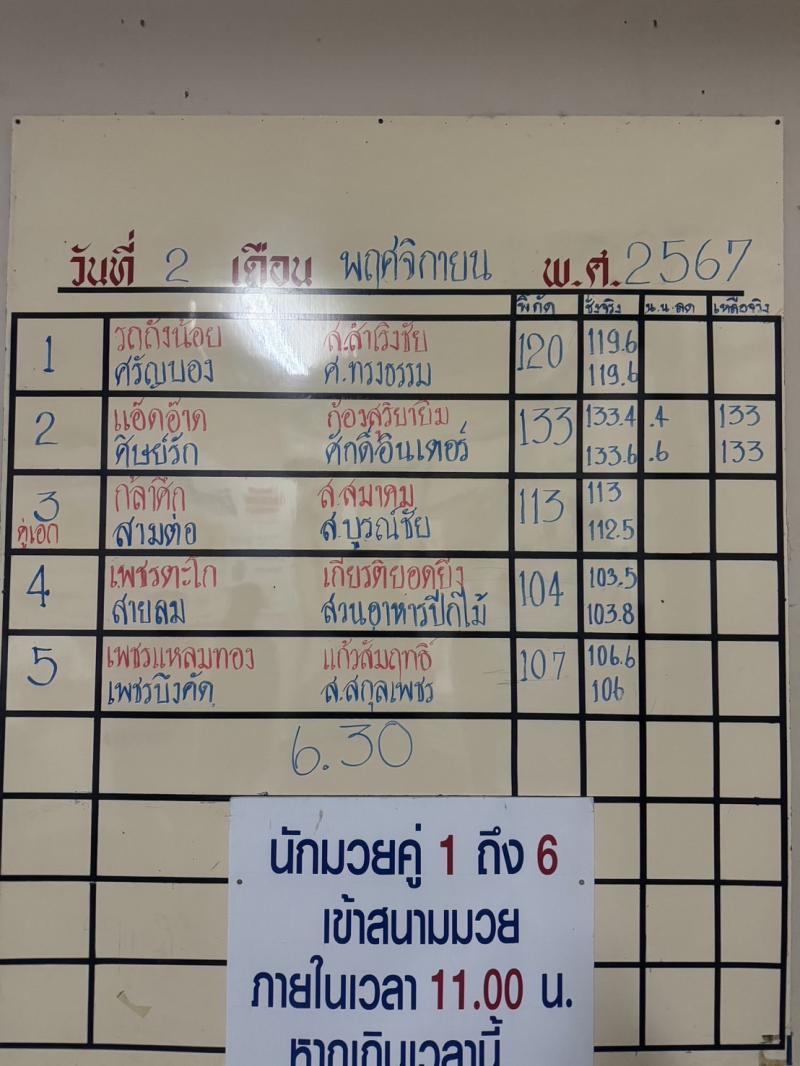 วันที่ 2 เดือน พฤศจิกายน พ.ศ. 2567
พิกัด ชั่งจริง น.น.ลด เหลือจริง
1 รถถังน้อย ส.สำเริงชัย 120 119.6
ศรัญบอง ศ.ทรงธรรม 119.6
2 แอ๊ดอ๊าด ก้องสุริยายิม 133 133.4 .4 133
ศิษย์รัก ศักดิ์อินเตอร์ 133.6 .6 133
3 กล้าศึก ส.สมาคม 113 113
คู่เอก สามต่อ ส.บูรณ์ชัย 112.5
4 เพชรตะโก เกียรติยอดยิ่ง 104 103.5
สายลม สวนอาหารปีกไม้ 103.8
5 เพชรแหลมทอง แก้วสัมฤทธิ์ 107 106.6
เพชรบึงคัด ส.สกุลเพชร 106
6.30
นักมวยคู่ 1 ถึง 6
เข้าสนามมวย
ภายในเวลา 11.00 น.
หากเกินเวลานี้